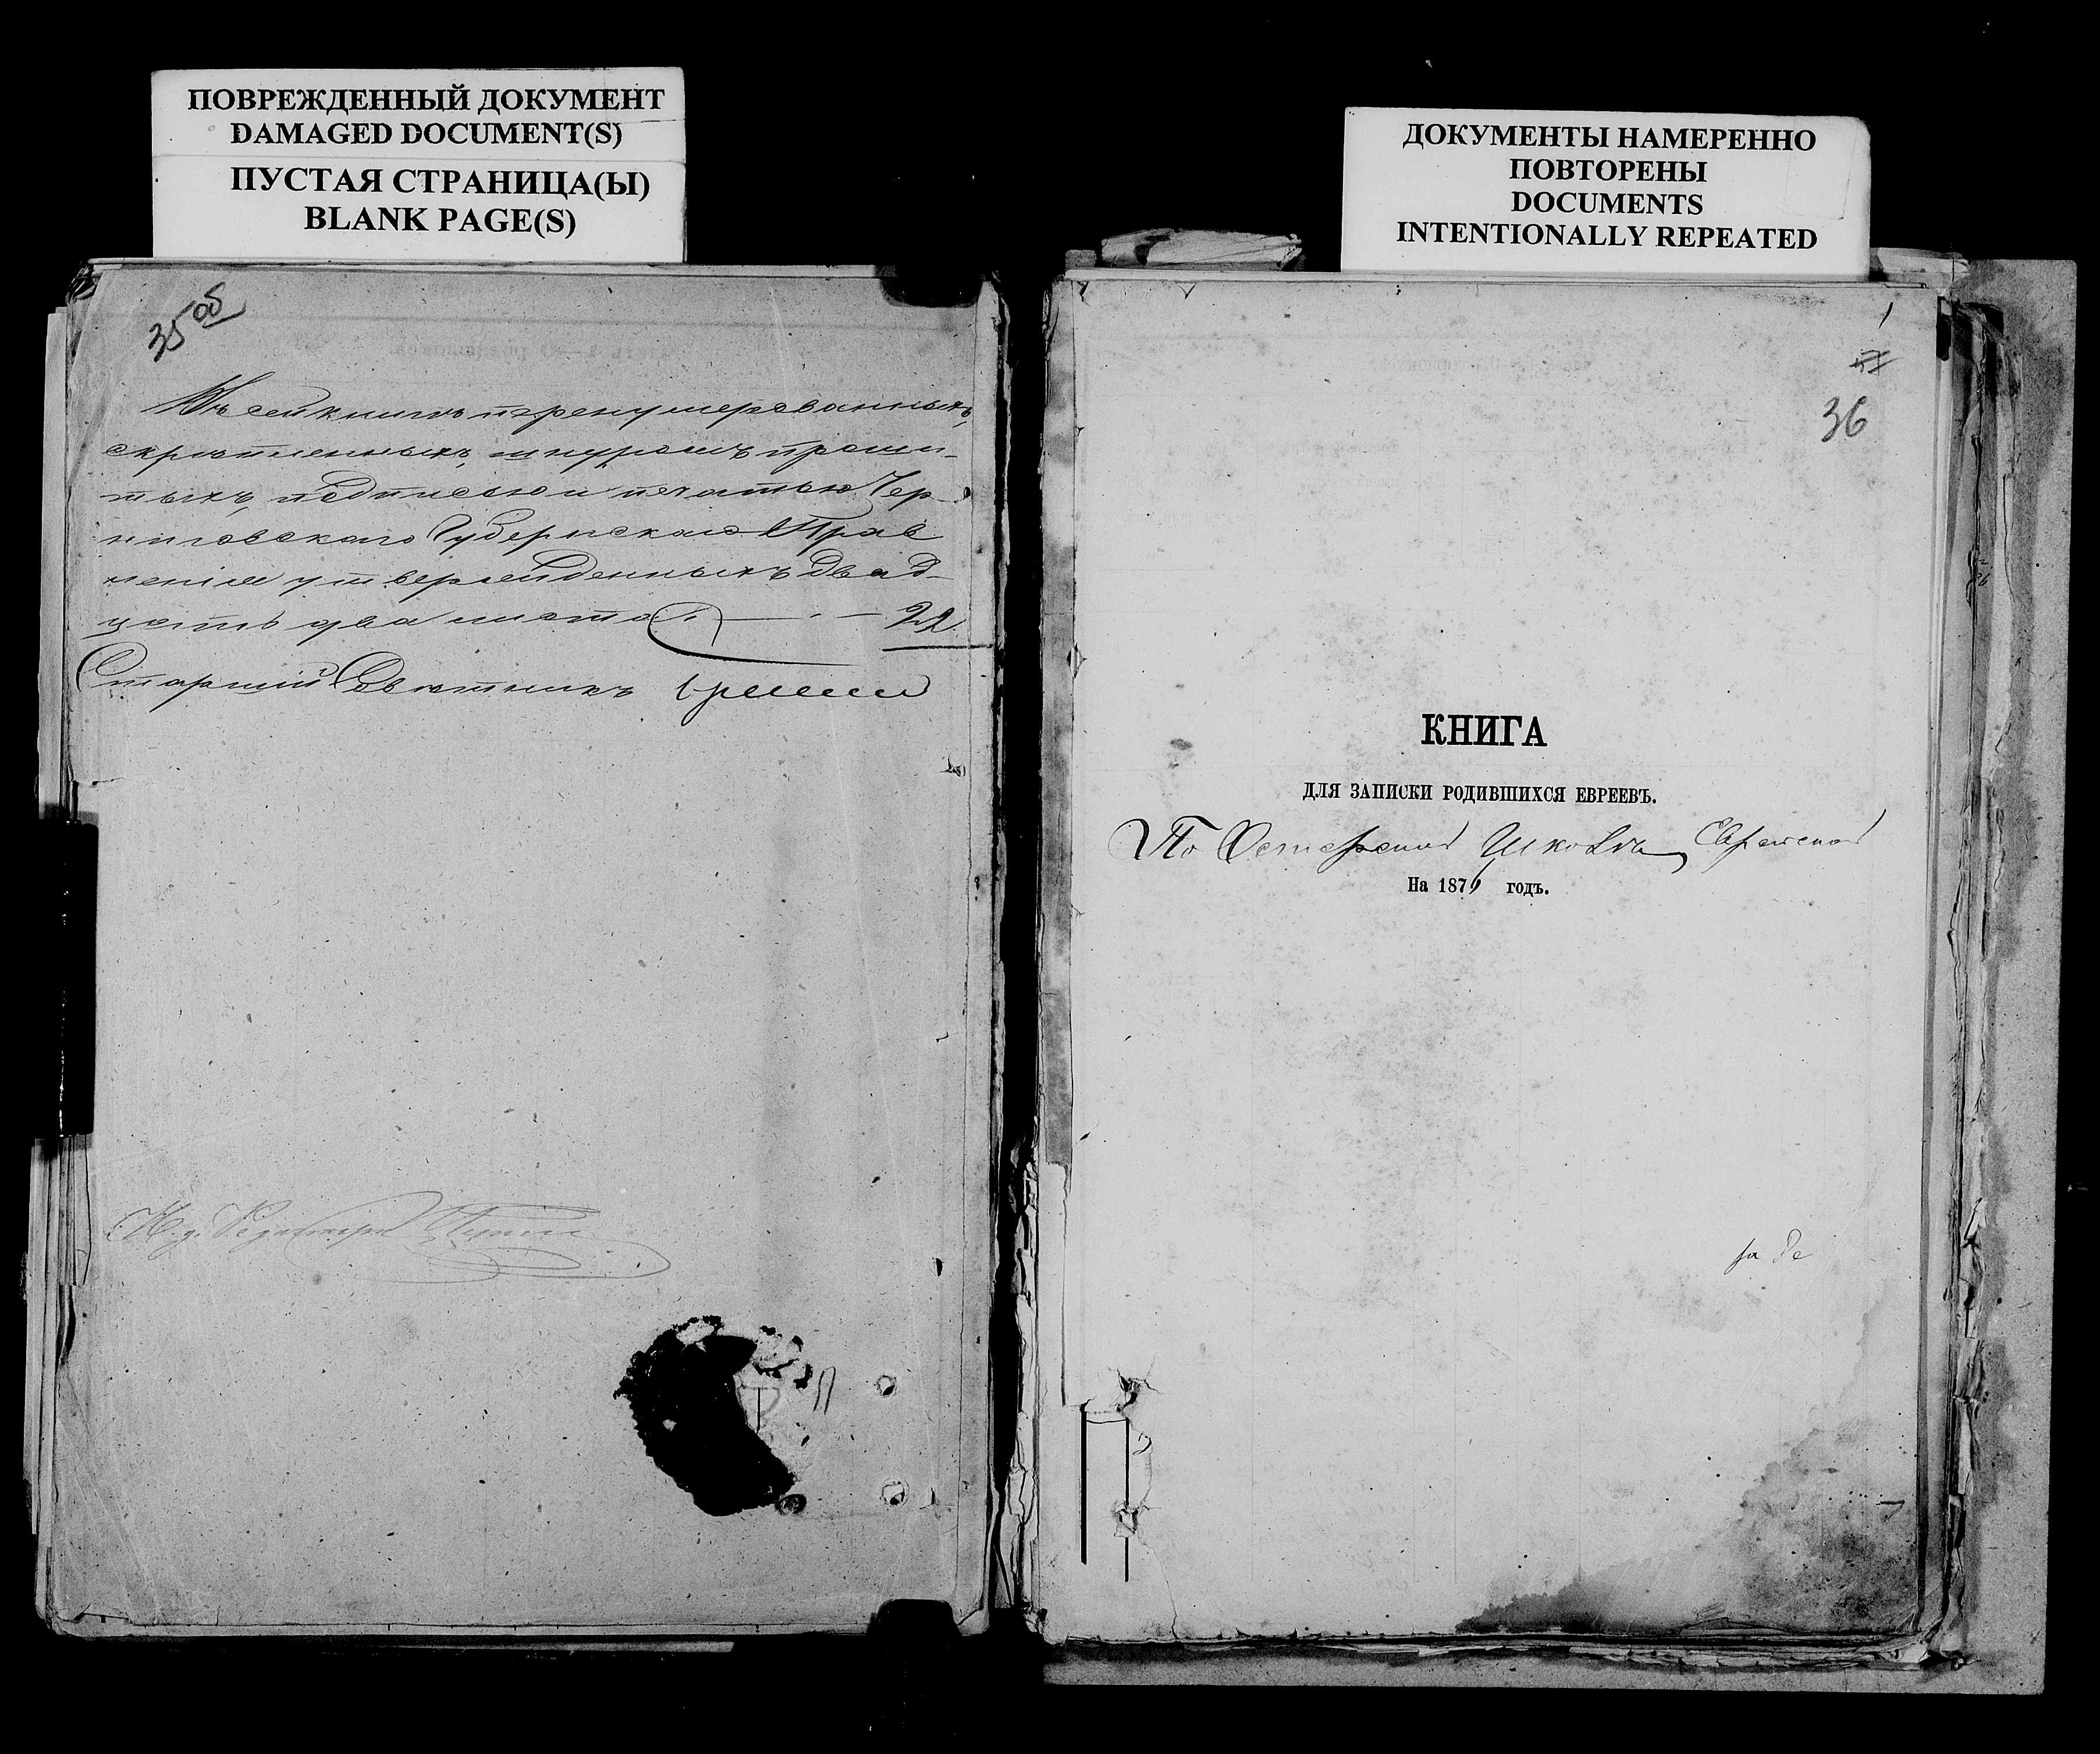 ПОВРЕЖДЕННЫЙ ДОКУМЕНТ
DAMAGED DOCUMENT(S)
ПУСТАЯ СТРАНИЦА(Ы)
BLANK PAGE(S)
35 об
Въ сей книгѣ пронумерованныхъ,
скрѣпленныхъ, шнуромъ проши-
тыхъ, подписью и печатью Чер-
ниговскаго Губернскаго Прав
ленія утвержденныхъ двад-
цать два листа 22
Старшій Совѣтникъ
И. д.
ДОКУМЕНТЫ НАМЕРЕННО
ПОВТОРЕНЫ
DOCUMENTS
INTENTIONALLY REPEATED
1
36
КНИГА
ДЛЯ ЗАПИСКИ РОДИВШИХСЯ ЕВРЕЕВЪ.
По Остерской Школѣ Еврейской
На 1876 годъ.